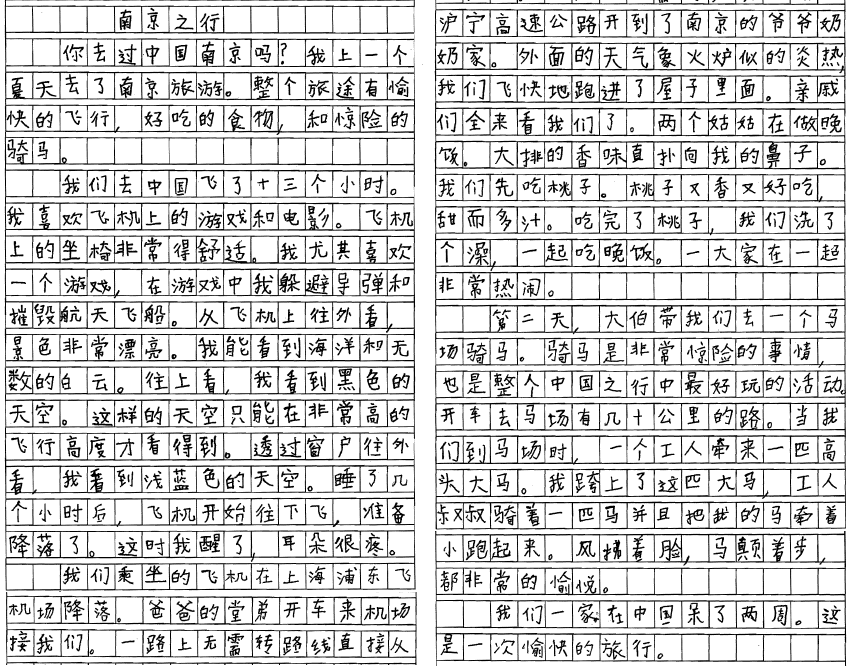 南京之行
你去过中国南京吗？我上一个
夏天去了南京旅游。整个旅途有愉
快的飞行，好吃的食物，和惊险的
骑马。
我们去中国飞了十三个小时。
我喜欢飞机上的游戏和电影。飞机
上的坐椅非常得舒适。我尤其喜欢
一个游戏，在游戏中我躲避导弹和
摧毁航天飞船。从飞机上往外看，
景色非常漂亮。我能看到海洋和无
数的白云。往上看，我看到黑色的
天空。这样的天空只能在非常高的
飞行高度才看得到。透过窗户往外
看，我看到浅蓝色的天空。睡了几
个小时后，飞机开始往下飞，准备
降落了。这时我醒了，耳朵很疼。
我们乘坐的飞机在上海浦东飞
机场降落。爸爸的堂弟开车来机场
接我们。一路上无需转路线直接从
沪宁高速公路开到了南京的爷爷奶
奶家。外面的天气象火炉似的炎热，
我们飞快地跑进了屋子里面。亲戚
们全来看我们了。两个姑姑在做晚
饭。大排的香味直扑向我的鼻子。
我们先吃桃子。桃子又香又好吃，
甜而多汁。吃完了桃子，我们洗了
个澡，一起吃晚饭。一大家在一起
非常热闹。
第二天，大伯带我们去一个马
场骑马。骑马是非常惊险的事情，
也是整个中国之行中最好玩的活动。
开车去马场有几十公里的路。当我
们到马场时，一个工人牵来一匹高
头大马。我跨上了这匹大马，工人
叔叔骑着一匹马并且把我的马牵着
小跑起来。风拂着脸，马颠着步，
都非常的愉悦。
我们一家在中国呆了两周。这
是一次愉快的旅行。